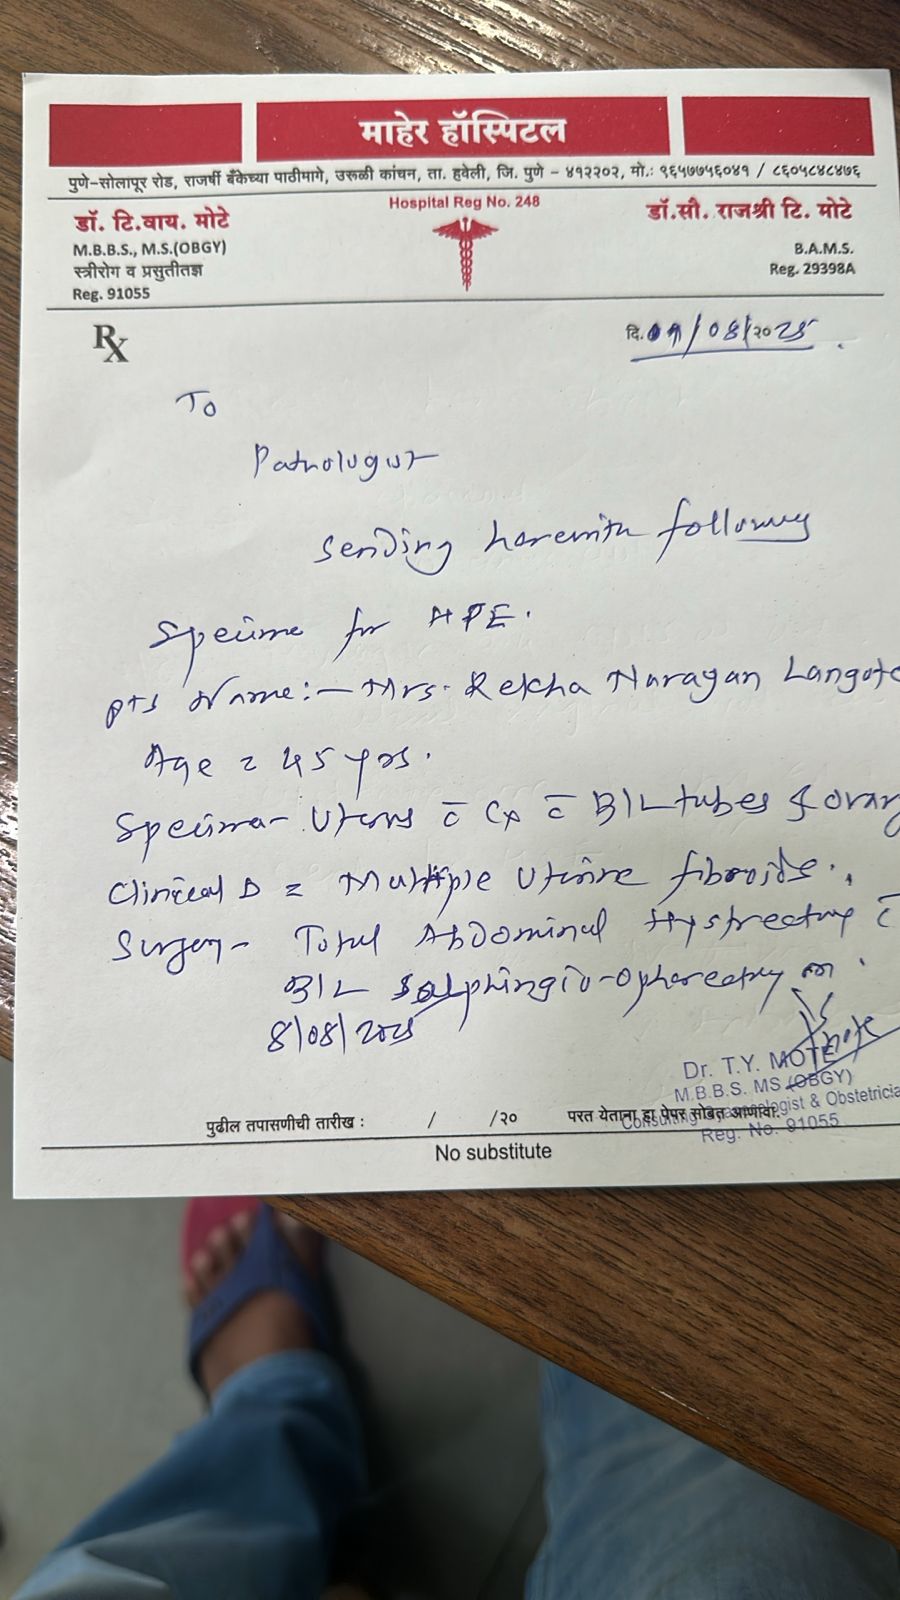 माहेर हॉस्पिटल
पुणे-सोलापूर रोड, राजर्षी बँकेच्या पाठीमागे, उरूळी कांचन, ता. हवेली, जि. पुणे - ४१२२०२, मो.: ९६५७७५६०४१ / ८६०५८४८४७६
Hospital Reg No. 248
डॉ. टि.वाय. मोटे
M.B.B.S., M.S.(OBGY)
स्त्रीरोग व प्रसुतीतज्ञ
Reg. 91055
डॉ.सौ. राजश्री टि. मोटे
B.A.M.S.
Reg. 29398A
Rx
दि. 09/08/२०25
To
Pathologist
Sending herewith following
Specime for HPE.
Pts Name:- Mrs. Rekha Narayan Langote
Age = 45 yrs.
Specime- Uterus c̄ Cx c̄ B/L tubes & ovary
Clinical D = Multiple Uterine fibroids.
Surgery- Total Abdominal Hystrectomy c̄
B/L Salphingio-Ophorectomy on
8/08/2025
Dr. T.Y. MOTE
M.B.B.S. MS (OBGY)
Consulting Gynaecologist & Obstetricia
Reg. No. 91055
पुढील तपासणीची तारीख : / /२० परत येताना हा पेपर सोबत आणावा.
No substitute